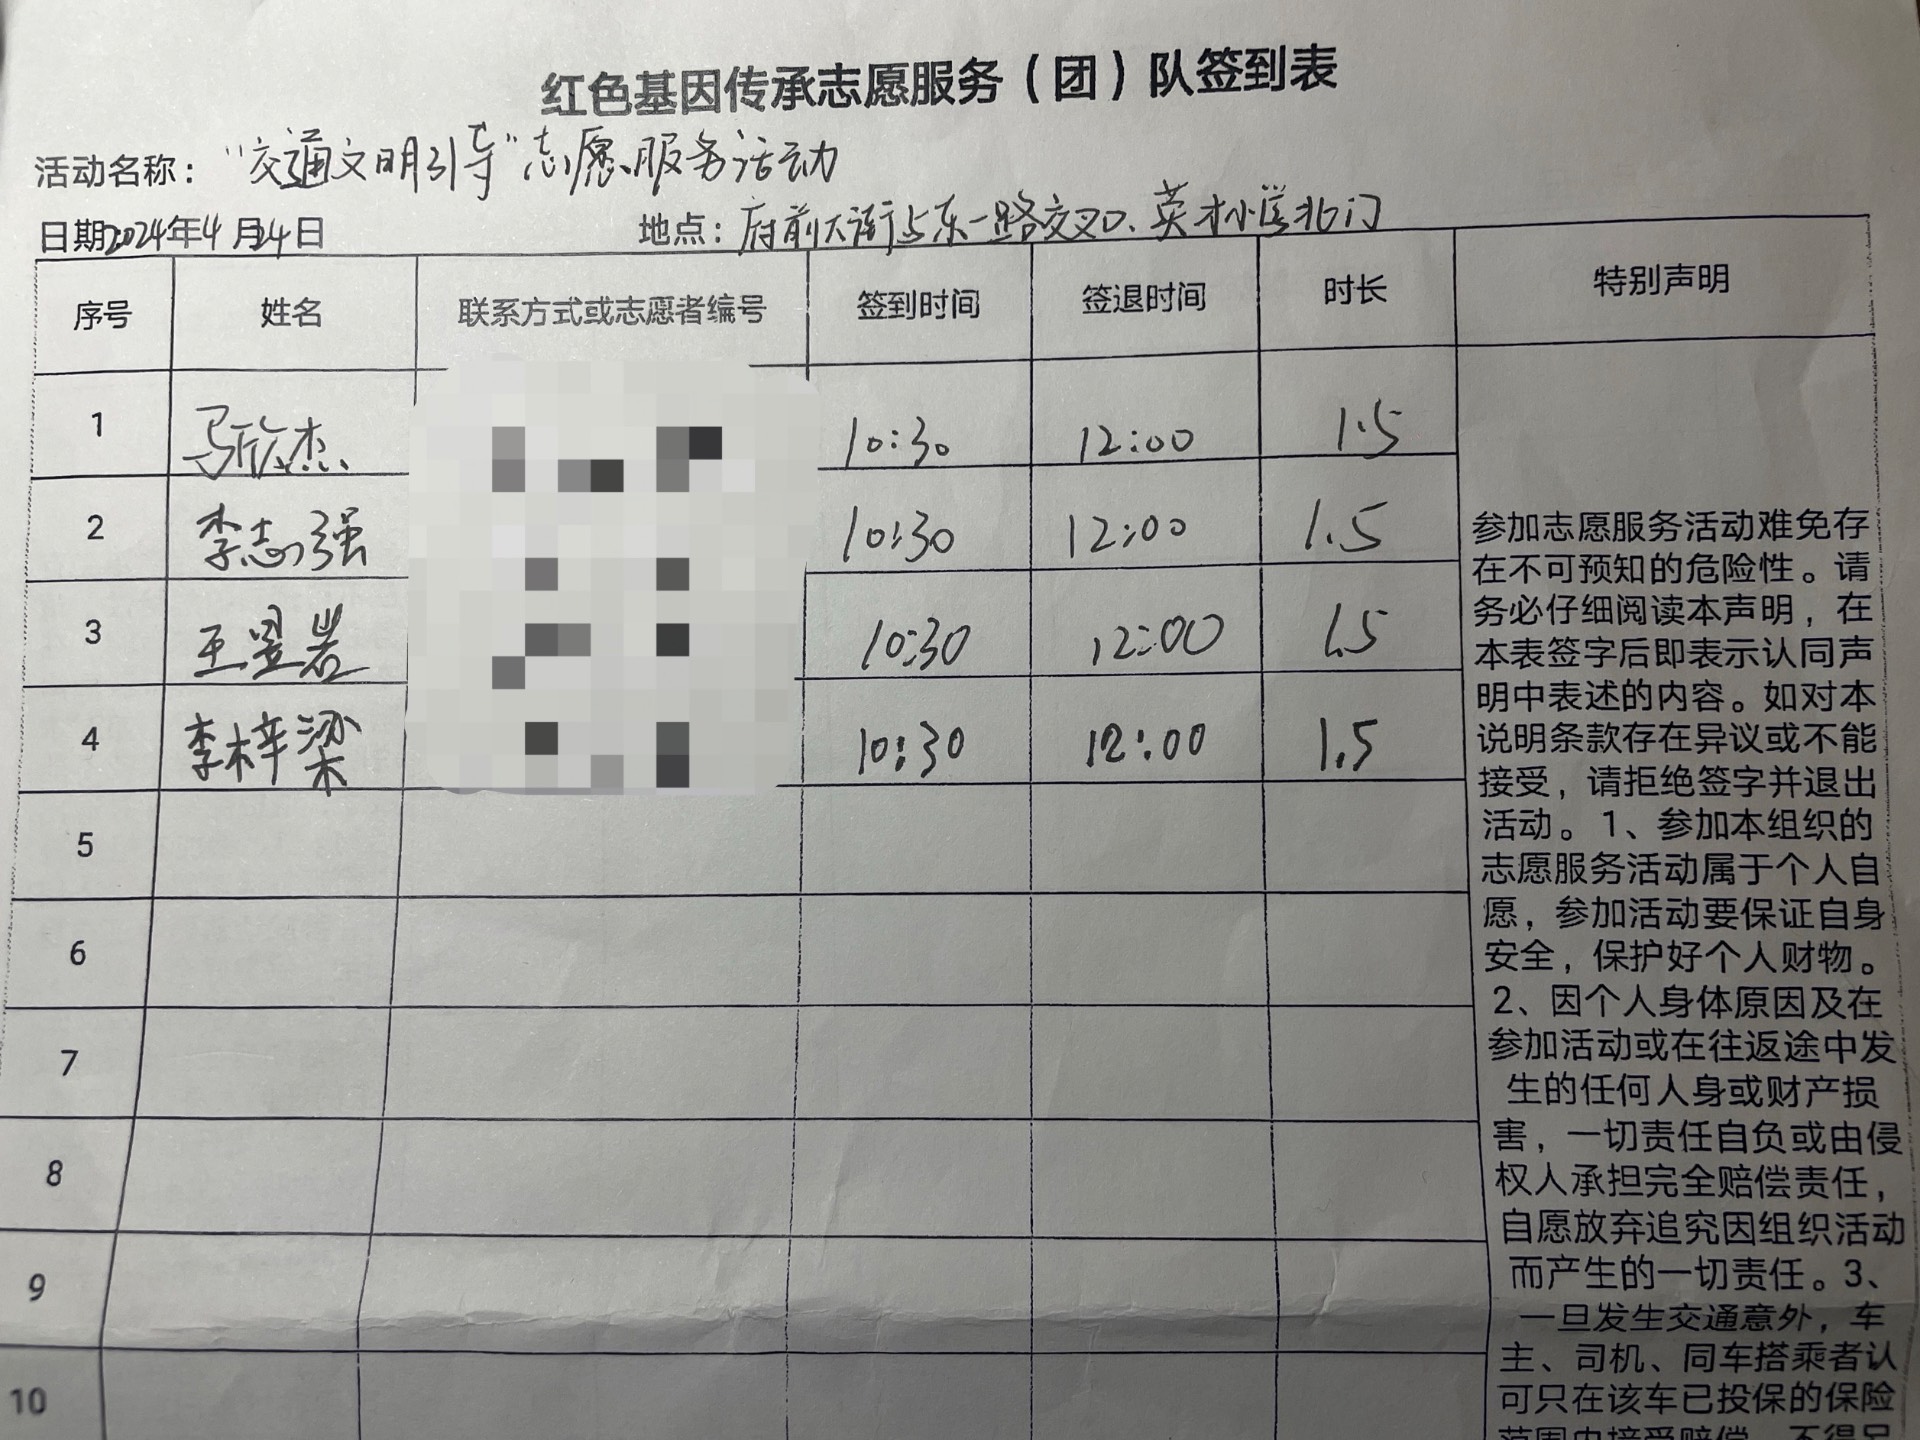 红色基因传承志愿服务（团）队签到表
活动名称："交通文明引导"志愿服务活动
日期2024年4月24日 地点：府前大街与东一路交叉口、英才小学北门
序号 姓名 联系方式或志愿者编号 签到时间 签退时间 时长 特别声明
1 马欣杰 10:30 12:00 1.5
2 李志强 10:30 12:00 1.5
3 王昱岩 10:30 12:00 1.5
4 李梓梁 10:30 12:00 1.5
5
6
7
8
9
10
参加志愿服务活动难免存
在不可预知的危险性。请
务必仔细阅读本声明，在
本表签字后即表示认同声
明中表述的内容。如对本
说明条款存在异议或不能
接受，请拒绝签字并退出
活动。1、参加本组织的
志愿服务活动属于个人自
愿，参加活动要保证自身
安全，保护好个人财物。
2、因个人身体原因及在
参加活动或在往返途中发
生的任何人身或财产损
害，一切责任自负或由侵
权人承担完全赔偿责任，
自愿放弃追究因组织活动
而产生的一切责任。3、
一旦发生交通意外，车
主、司机、同车搭乘者认
可只在该车已投保的保险
范围内接受赔偿，不得另